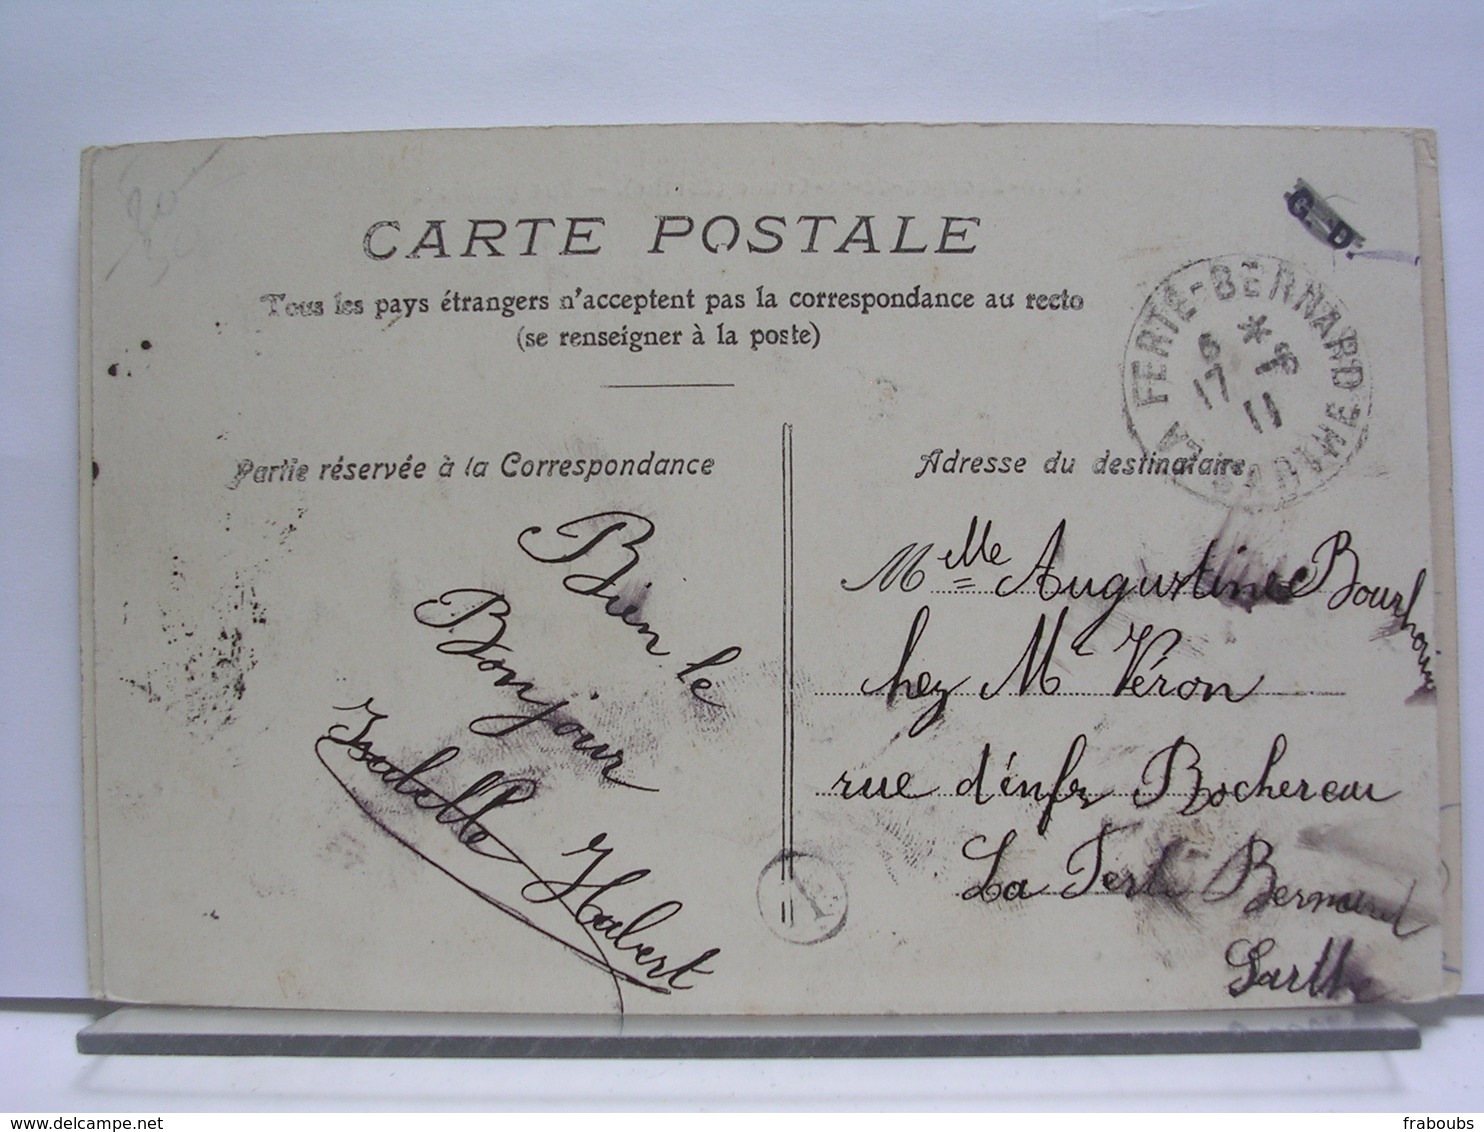 CARTE POSTALE
G. D.
Tous les pays étrangers n'acceptent pas la correspondance au recto
(se renseigner à la poste)
LA FERTE-BERNARD SARTHE
6 * 17 -6 11
Partie réservée à la Correspondance
Bien le
Bonjour
Isabelle Habert
Adresse du destinataire
Melle Augustine
chez Mr Véron
rue d'enfer Bochereau
La Ferte Bernard
Sarthe
delcampe.net
fraboubs